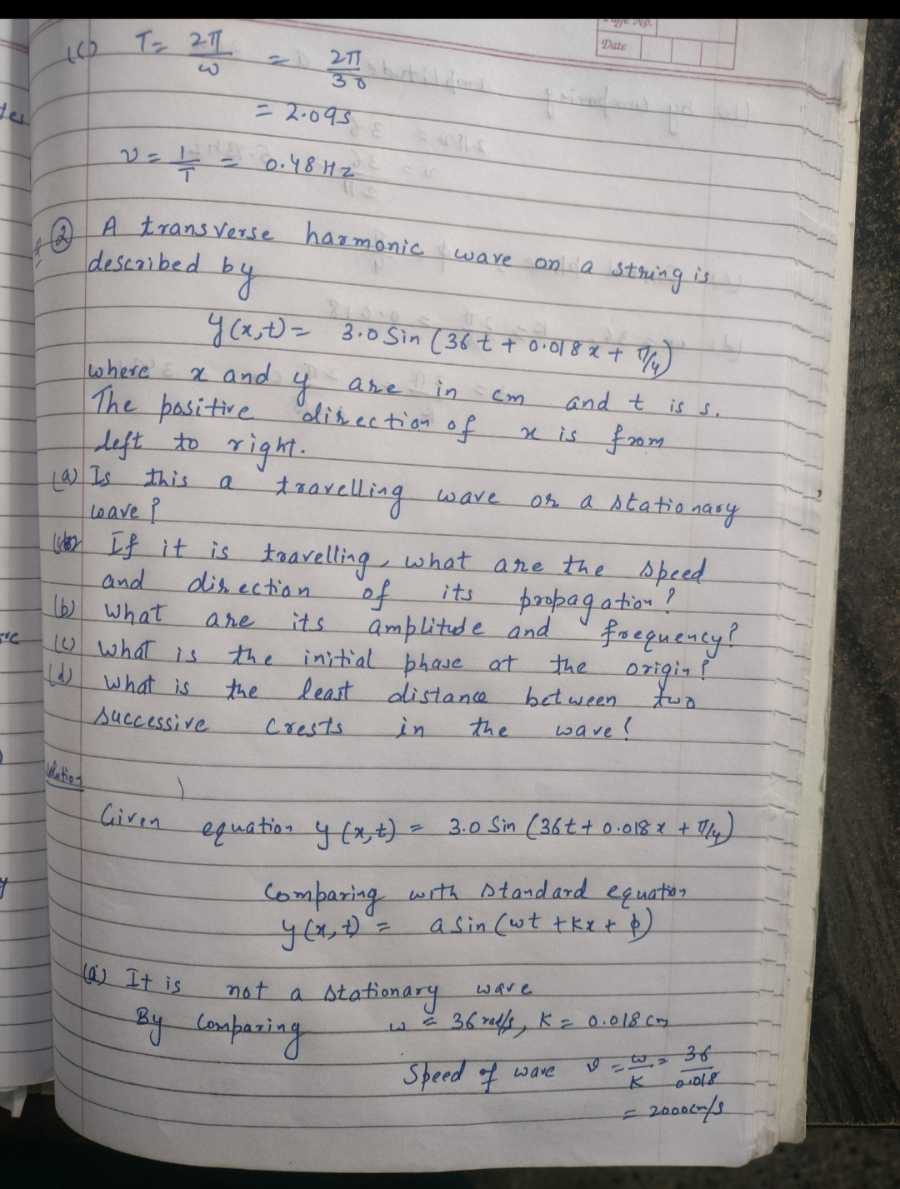 Page No.
Date
(c) T = 2π/ω = 2π/30
= 2.09s
ν = 1/T = 0.48 Hz
② A transverse harmonic wave on a string is
described by
y(x,t) = 3.0 Sin (36t + 0.018x + π/4)
where x and y are in cm and t is s.
The positive direction of x is from
left to right.
(a) Is this a travelling wave or a stationary
wave?
If it is travelling, what are the speed
and direction of its propagation?
(b) what are its amplitude and frequency?
(c) what is the initial phase at the origin?
(d) what is the least distance between two
successive crests in the wave!
Solution
Given equation y(x,t) = 3.0 Sin (36t + 0.018x + π/4)
Comparing with standard equation
y(x,t) = a Sin (wt + Kx + ϕ)
(a) It is not a stationary wave
By Comparing ω = 36 rad/s, K = 0.018 cm
Speed of wave v = ω/K = 36/0.018
= 2000cm/s